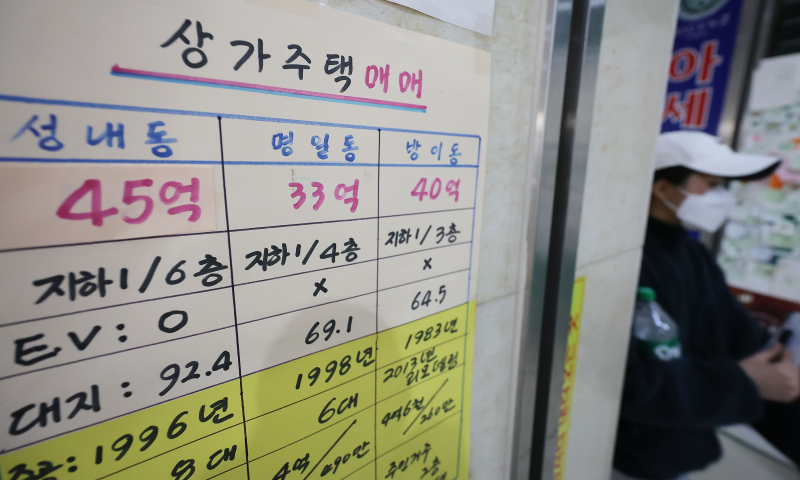 상가주택 매매
성내동 명일동 방이동
45억 33억 40억
지하1/6층 지하1/4층 지하1/3층
E.V: O x x
대지: 92.4 69.1 64.5
준공: 1996년 1998년 1983년
2013년
리모델링
8대 6대 4억6천/260만
4억/490만 주인거주
2층
아
세